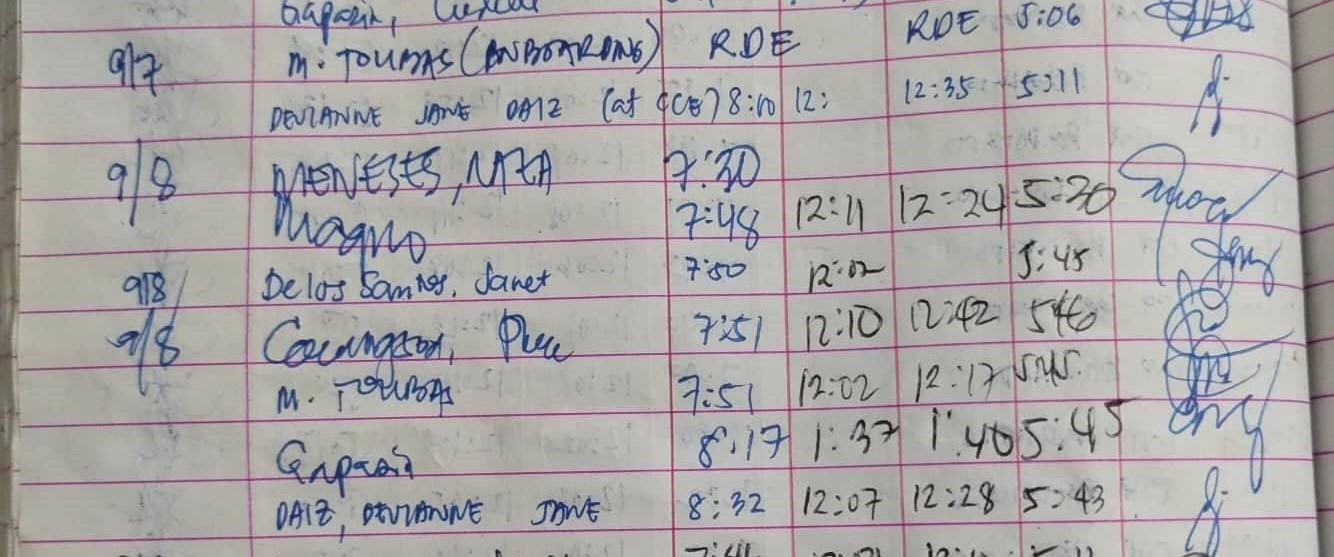 Gaparin,
9/7 M. TOUBAS (ONBOARDING) RDE RDE 5:06
DEVIANNE JANE DAIZ (at CCE) 8:10 12: 12:35 5:11
9/8 MENESES, 7:30
Magno 7:48 12:11 12:24 5:30
9/8 Delos Santos, Janet 7:50 12:02 5:45
9/8 7:51 12:10 12:42 546
M. TOUBAS 7:51 12:02 12:17 5:45
Gaparin 8:17 1:37 1:40 5:45
DAIZ, DEVIANNE JANE 8:32 12:07 12:28 5:43